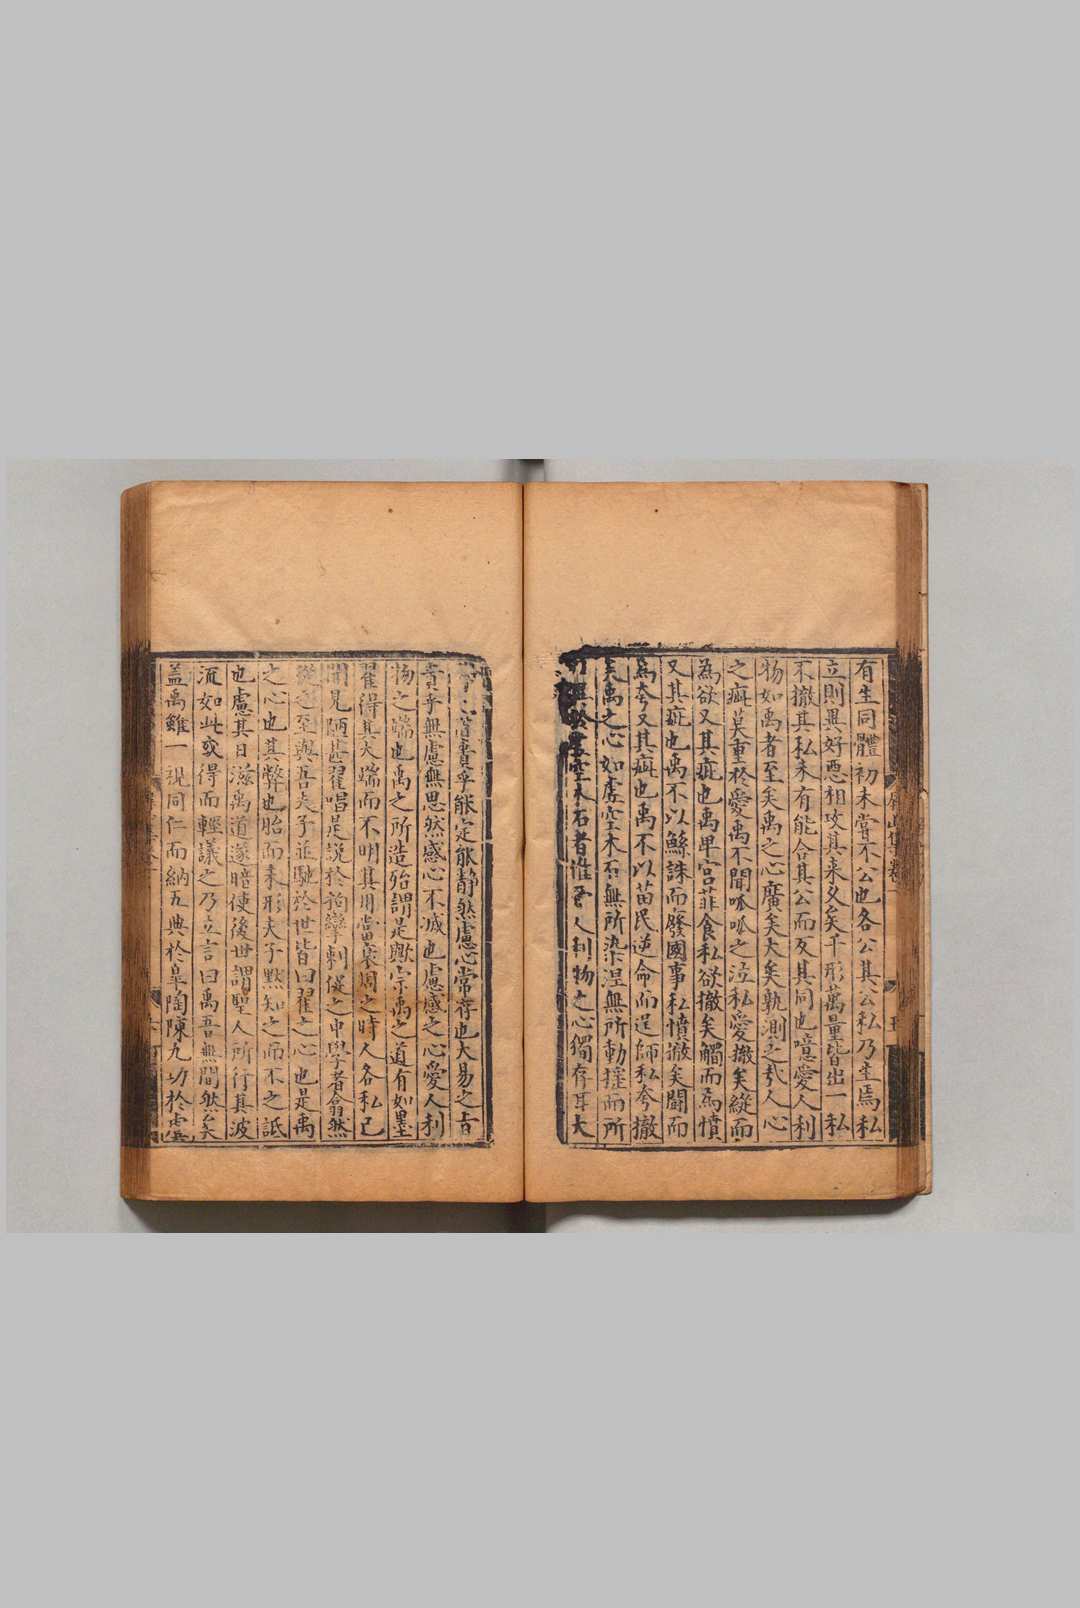 有生同體初未嘗不公也各公其公私乃生焉私
立則異好惡相攻其来久矣千形萬量皆出一私
不撤其私未有能合其公而反其同也噫愛人利
物如禹者至矣禹之心廣矣大矣孰測之哉人心
之疵莫重於愛禹不聞呱呱之泣私愛撤矣縱而
為欲又其疵也禹卑宮菲食私欲撤矣觸而為憤
又其疵也禹不以鯀誅而廢國事私憤撤矣鬪而
為夸又其疵也禹不以苗民逆命而逞師私夸撤
矣禹之心如虚空木石無所染涅無所動揺而所
虚空木石者惟愛人利物之心獨存耳大
能定能靜然慮心常存也大易之旨
無慮無思然感心不滅也慮感之心愛人利
物之端也禹之所造殆謂是歟宗禹之道有如墨
翟得其大端而不明其用當衰周之時人各私已
聞見陋甚翟唱是說於拘攣刺促之中學者翕然
從之至與吾夫子並馳於世皆曰翟之心也是禹
之心也其弊也胎而未形夫子黙知之而不之詆
也慮其日滋禹道遂暗使後世謂聖人所行其波
流如此或得而輕議之乃立言曰禹吾無間然矣
盖禹雖一視同仁而納五典於皐陶陳九功於虞